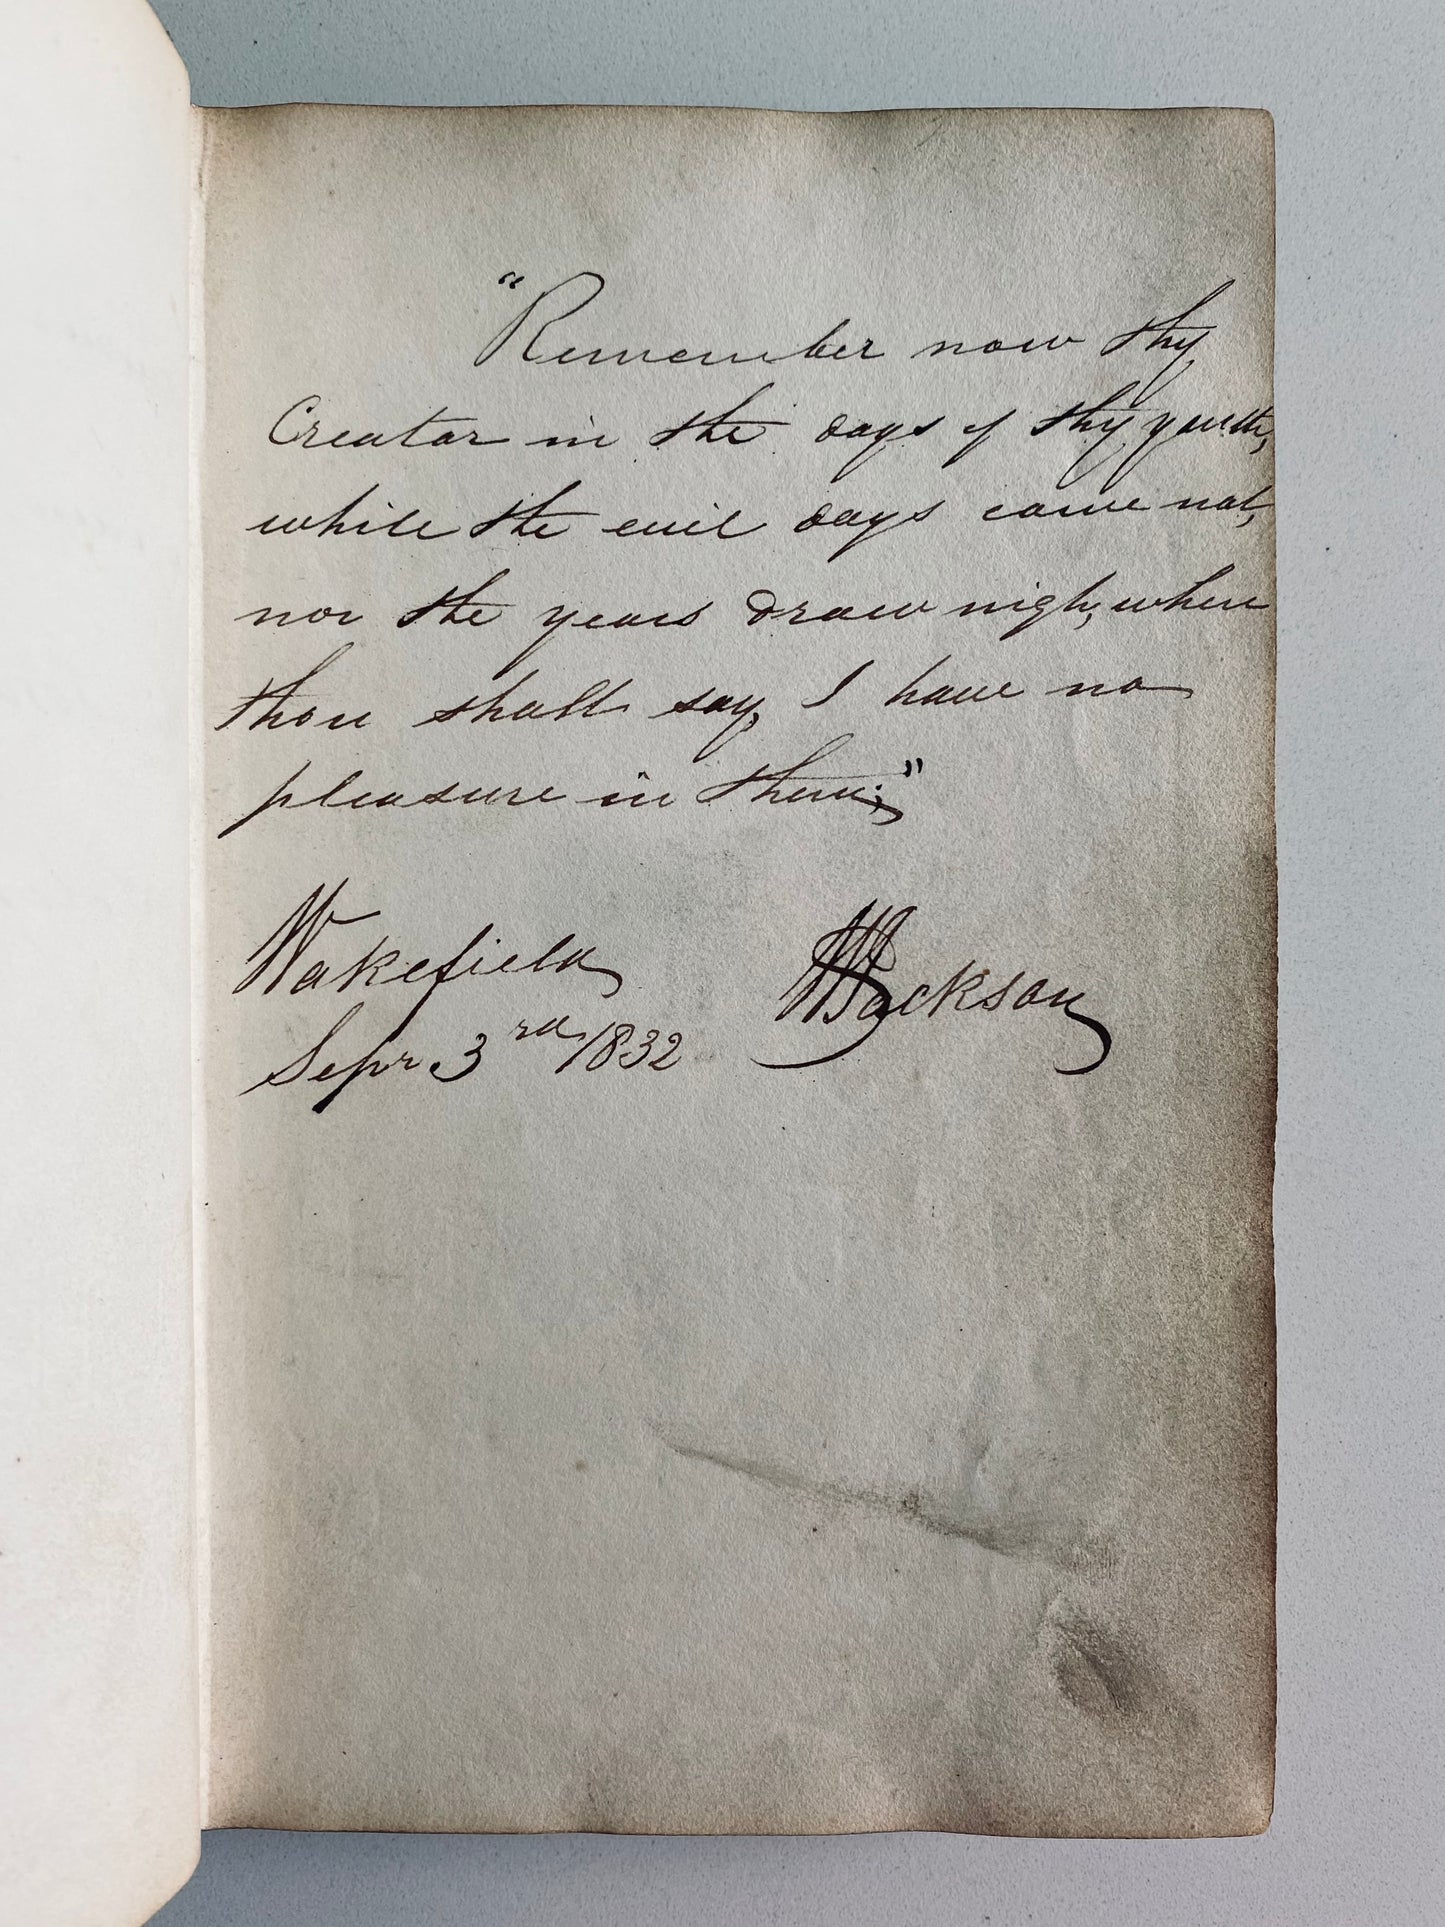 "Remember now thy
Creator in the days of thy youth,
while the evil days come not,
nor the years draw nigh, when
thou shalt say, I have no
pleasure in them;"
Wakefield
Jackson
Sepr 3rd 1832